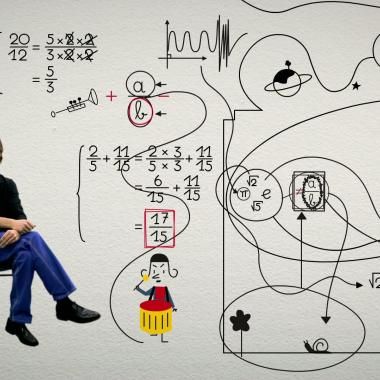 20/12 = 5×2×2/3×2×2
= 5/3
+ a −
b
2/5 + 11/15 = 2×3/5×3 + 11/15
= 6/15 + 11/15
= 17/15
√2
π e
√5
≠ a/b
√2